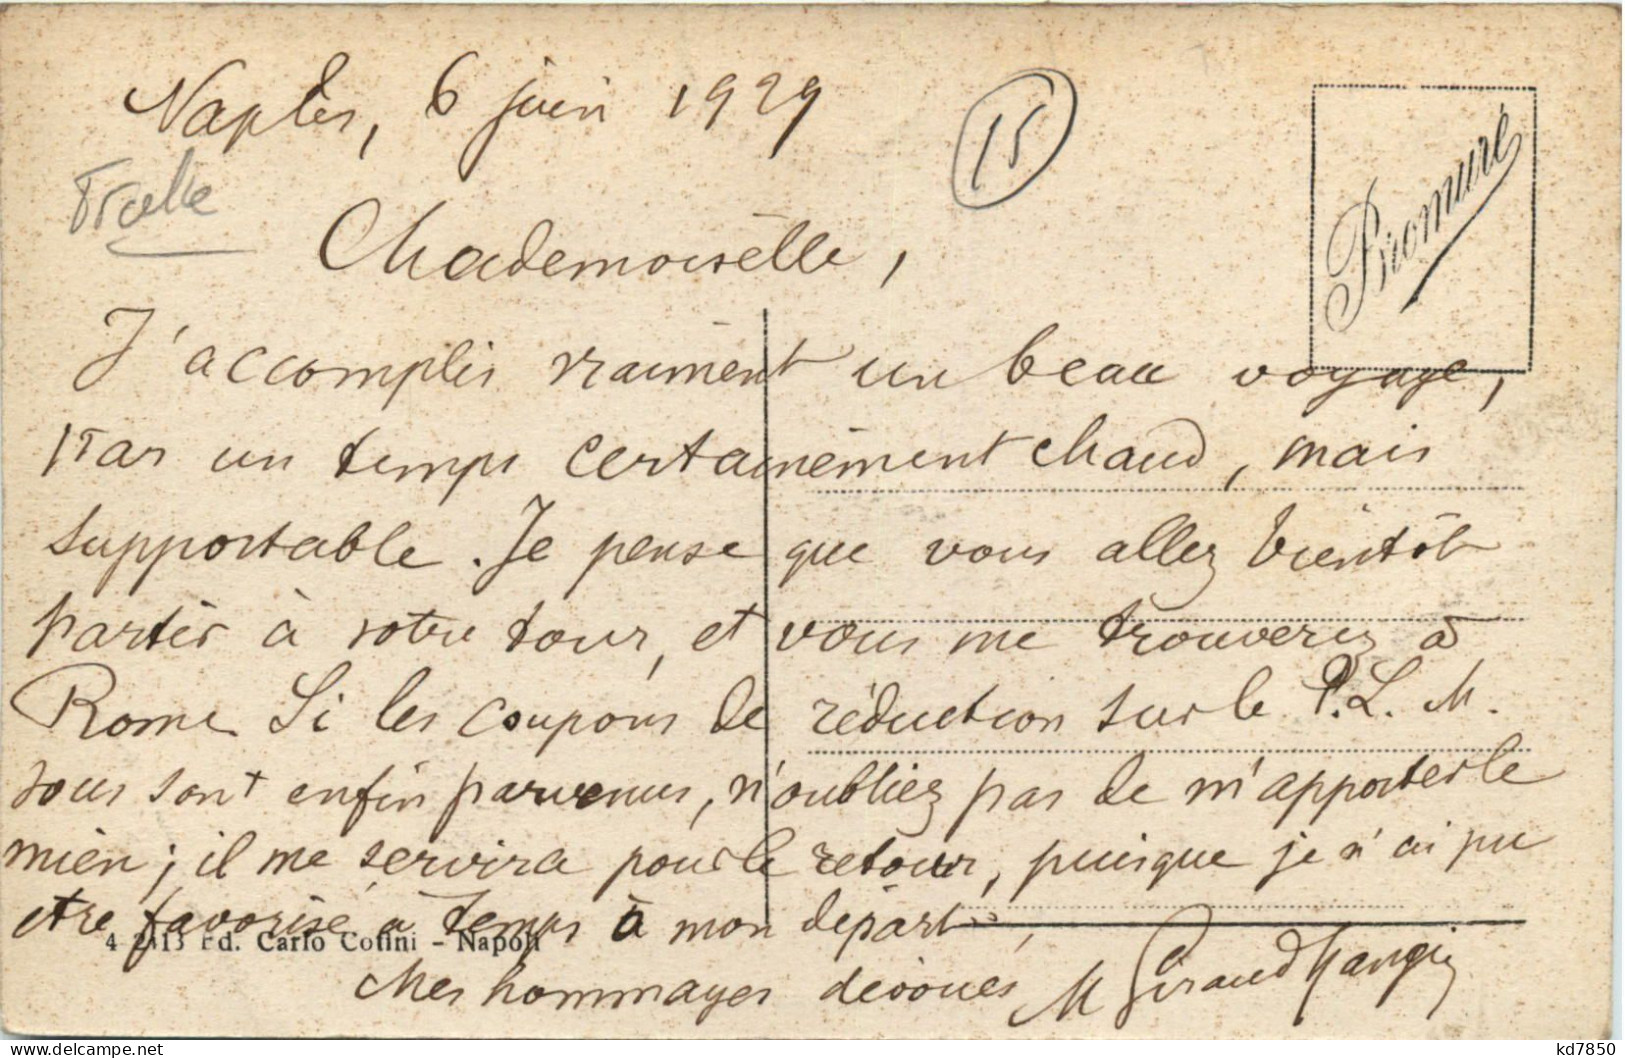 Naples, 6 juin 1929
15
Bromure
Mademoiselle,
J'accomplis vraiment un beau voyage,
par un temps certainement chaud, mais
supportable. Je pense que vous allez bientôt
partir à votre tour, et vous me trouverez à
Rome. Si les coupons de réduction sur le P.L.M.
vous sont enfin parvenus, n'oubliez pas de m'apporter le
mien; il me servira pour le retour, puisque je n'ai pu
être favorisé à temps à mon départ.
4 2313 Ed. Carlo Cofini - Napoli
Mes hommages dévoués M Giraud Mangin
kd7850